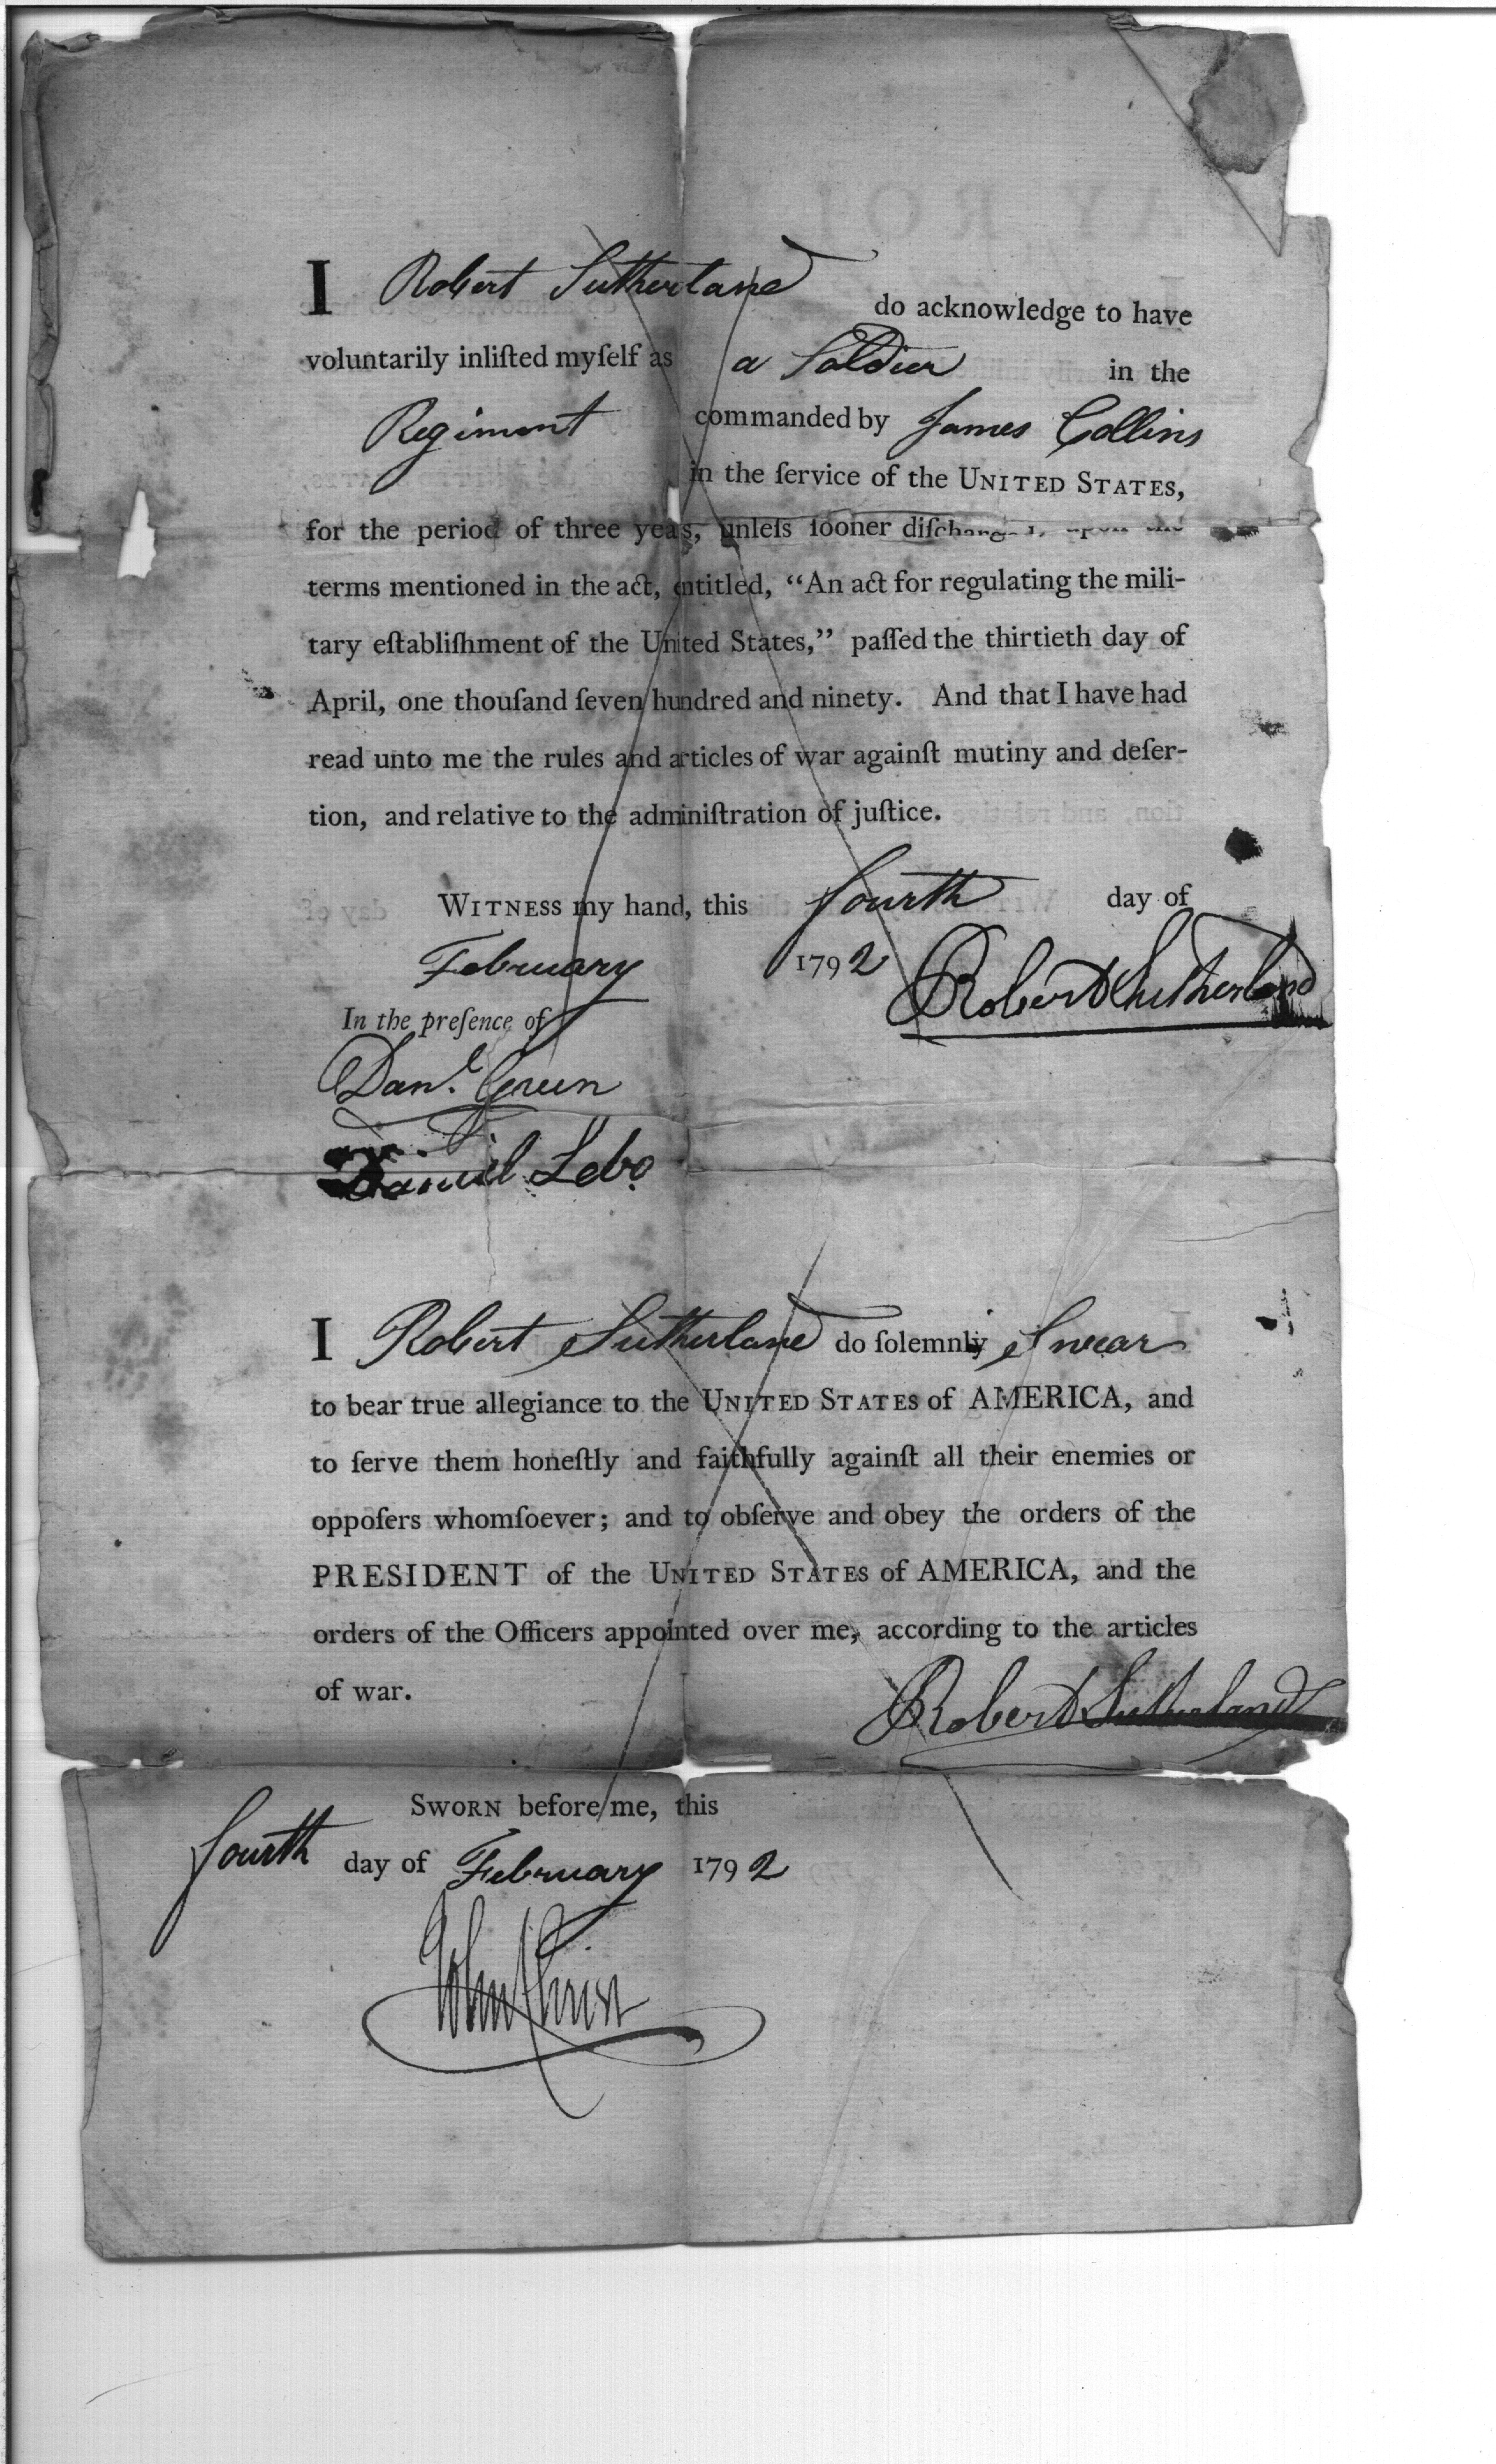 I Robert Sutherland do acknowledge to have
voluntarily inliſted myſelf as a Soldier in the
Regiment commanded by James Collins
in the ſervice of the UNITED STATES,
for the period of three yeas, unleſs ſooner diſcharged, upon the
terms mentioned in the act, entitled, “An act for regulating the mili-
tary eſtabliſhment of the United States,” paſſed the thirtieth day of
April, one thouſand ſeven hundred and ninety. And that I have had
read unto me the rules and articles of war againſt mutiny and deſer-
tion, and relative to the adminiſtration of juſtice.
WITNESS my hand, this fourth day of
February 1792 Robert Sutherland
In the preſence of
Danl. Green
Daniel Lebo
I Robert Sutherland do ſolemnly Swear
to bear true allegiance to the UNITED STATES of AMERICA, and
to ſerve them honeſtly and faithfully againſt all their enemies or
oppoſers whomſoever; and to obſerve and obey the orders of the
PRESIDENT of the UNITED STATES of AMERICA, and the
orders of the Officers appointed over me, according to the articles
of war.
Robert Sutherland
SWORN before me, this
fourth day of February 1792
John Christ